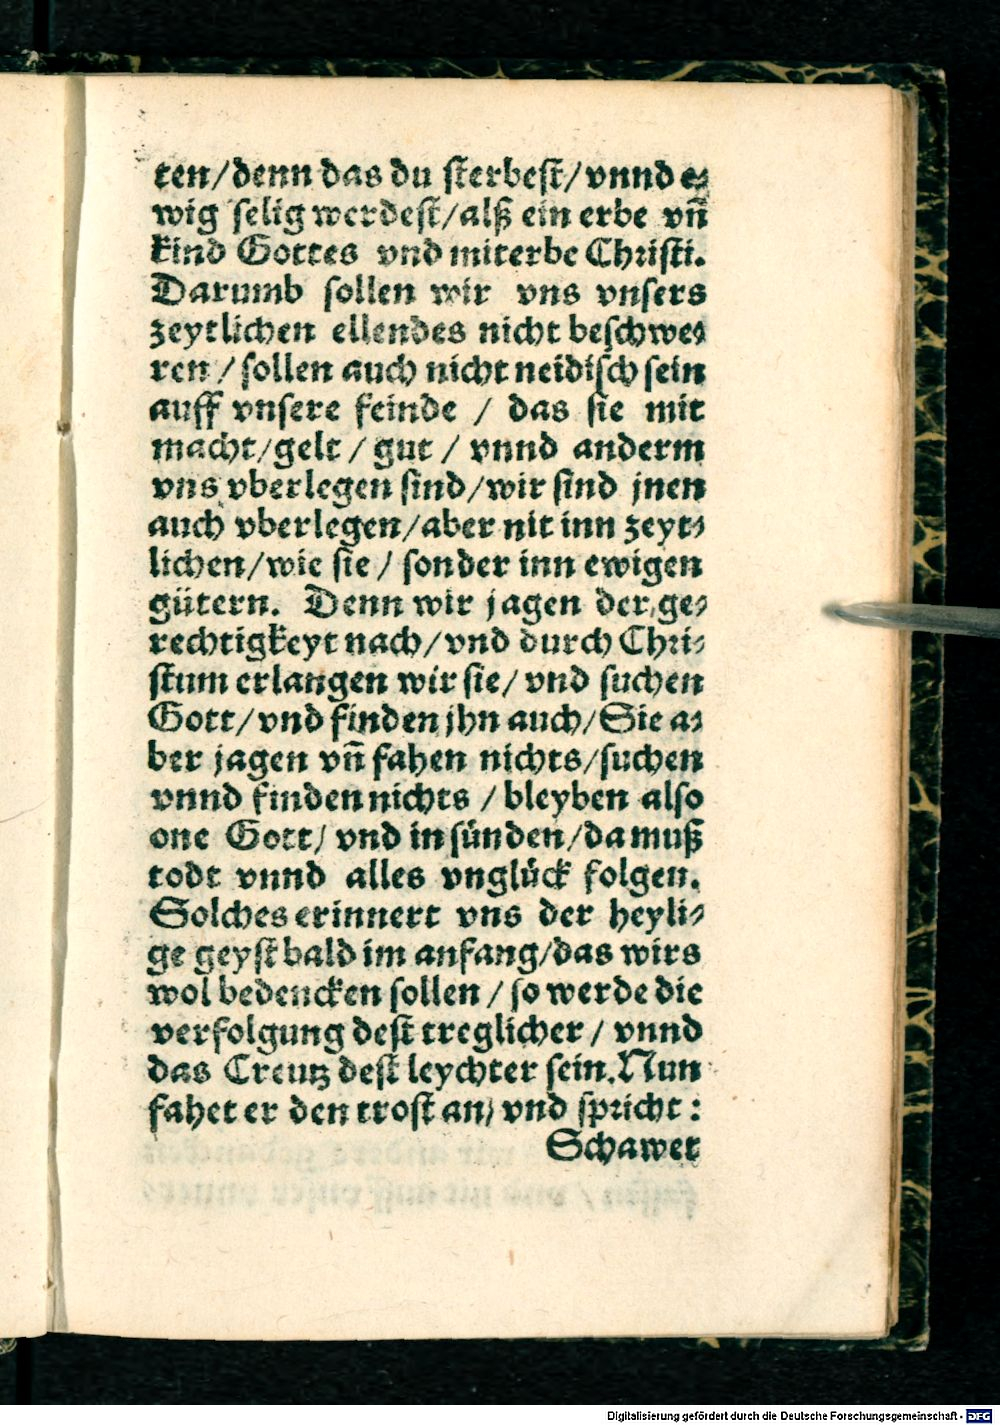 ten/denn das du sterbest/vnnd e⸗
wig selig werdest/alß ein erbe vn̄
kind Gottes vnd miterbe Christi.
Darumb sollen wir vns vnsers
zeytlichen ellendes nicht beschwe⸗
ren / sollen auch nicht neidisch sein
auff vnsere feinde / das sie mit
macht/gelt / gut / vnnd anderm
vns vberlegen sind/wir sind jnen
auch vberlegen/aber nit inn zeyt⸗
lichen/wie sie / sonder inn ewigen
gütern. Denn wir jagen der ge⸗
rechtigkeyt nach/vnd durch Chri⸗
stum erlangen wir sie/ vnd suchen
Gott/vnd finden jhn auch/Sie a⸗
ber jagen vn̄ fahen nichts/suchen
vnnd finden nichts / bleyben also
one Gott/ vnd in sünden/da muß
todt vnnd alles vnglück folgen.
Solches erinnert vns der heyli⸗
ge geyst bald im anfang/das wirs
wol bedencken sollen / so werde die
verfolgung dest treglicher / vnnd
das Creutz dest leychter sein. Nun
fahet er den trost an/ vnd spricht :
Schawet
Digitalisierung gefördert durch die Deutsche Forschungsgemeinschaft - DFG